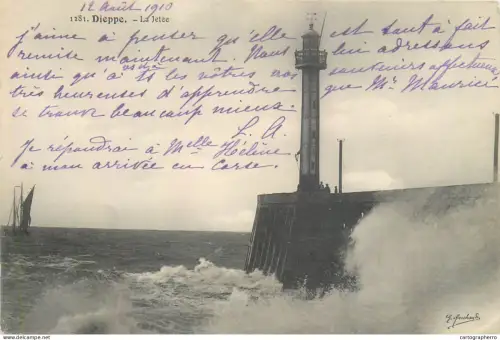 12 Août 1910
1281. Dieppe. - La Jetée
j'aime à penser qu'elle est tout à fait
remise maintenant. Nous lui adressons
ainsi qu'à tous les vôtres nos souvenirs affectueux
très heureuses d'apprendre que Mr. Maurice
se trouve beaucoup mieux.
L. A.
Je répondrai à Melle Hélène
à mon arrivée en Corse.
© cartographer - https://www.delcampe.net